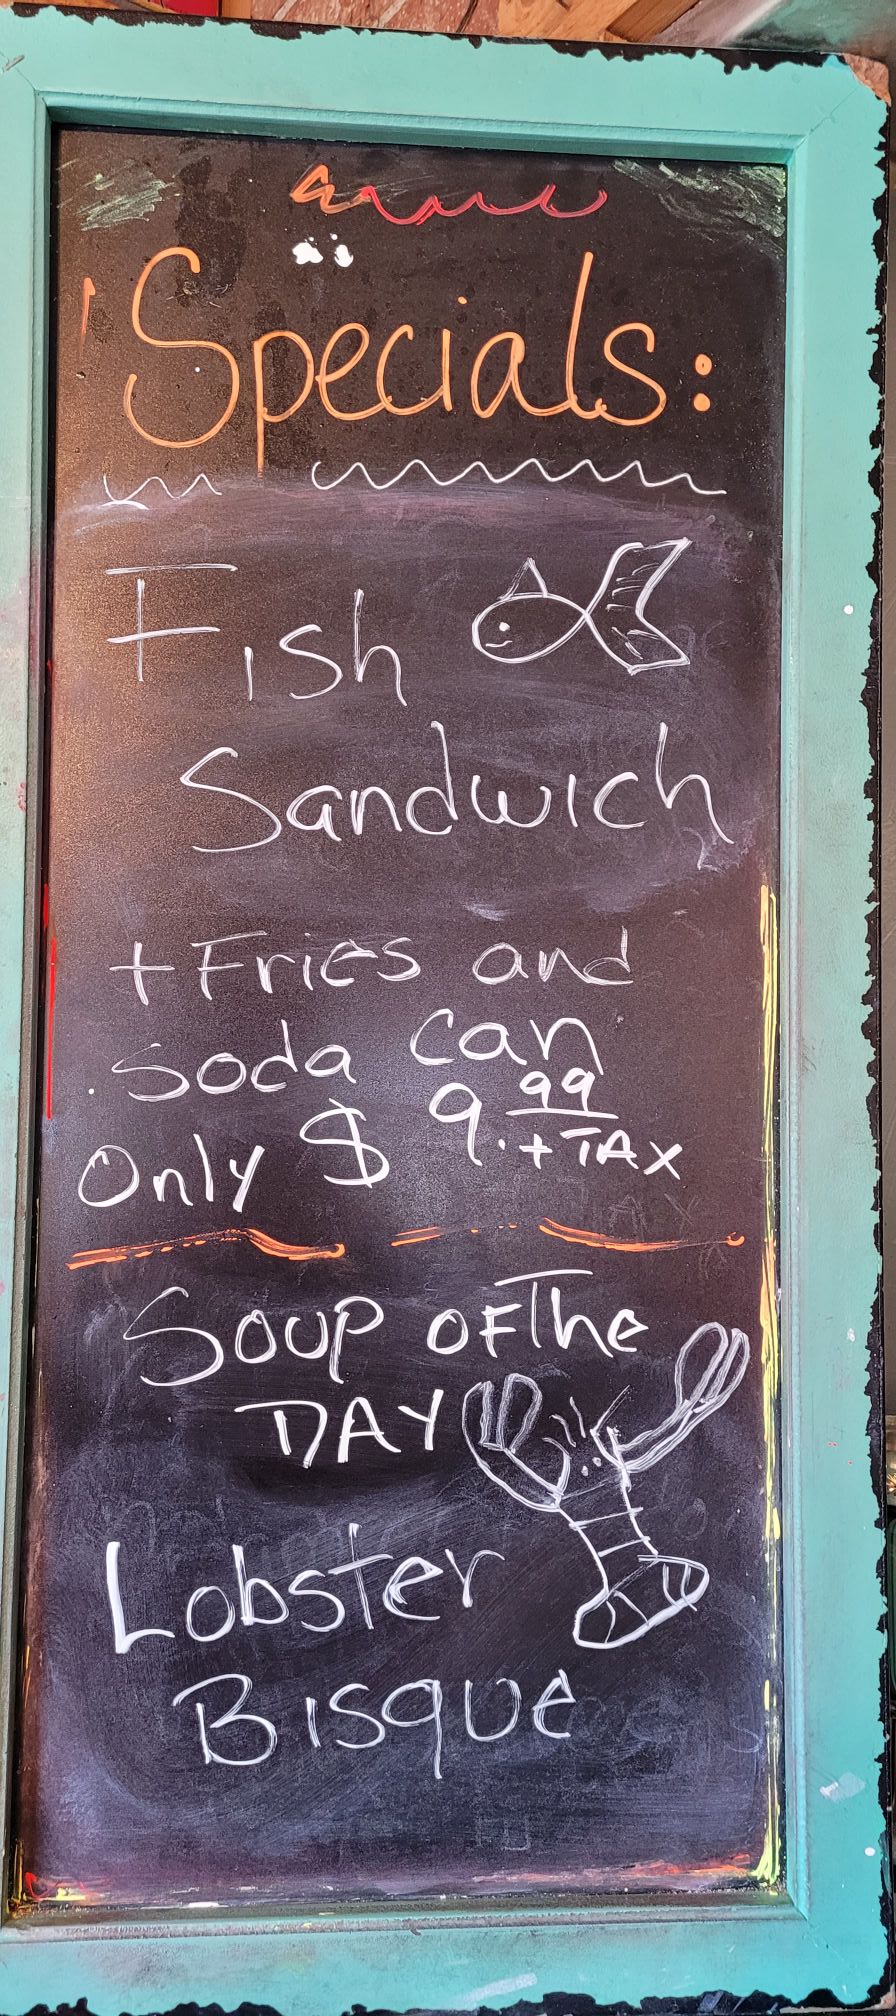 Specials:
Fish
Sandwich
+ Fries and
soda can
Only $ 9.99
+ TAX
Soup OF The
DAY
Lobster
Bisque